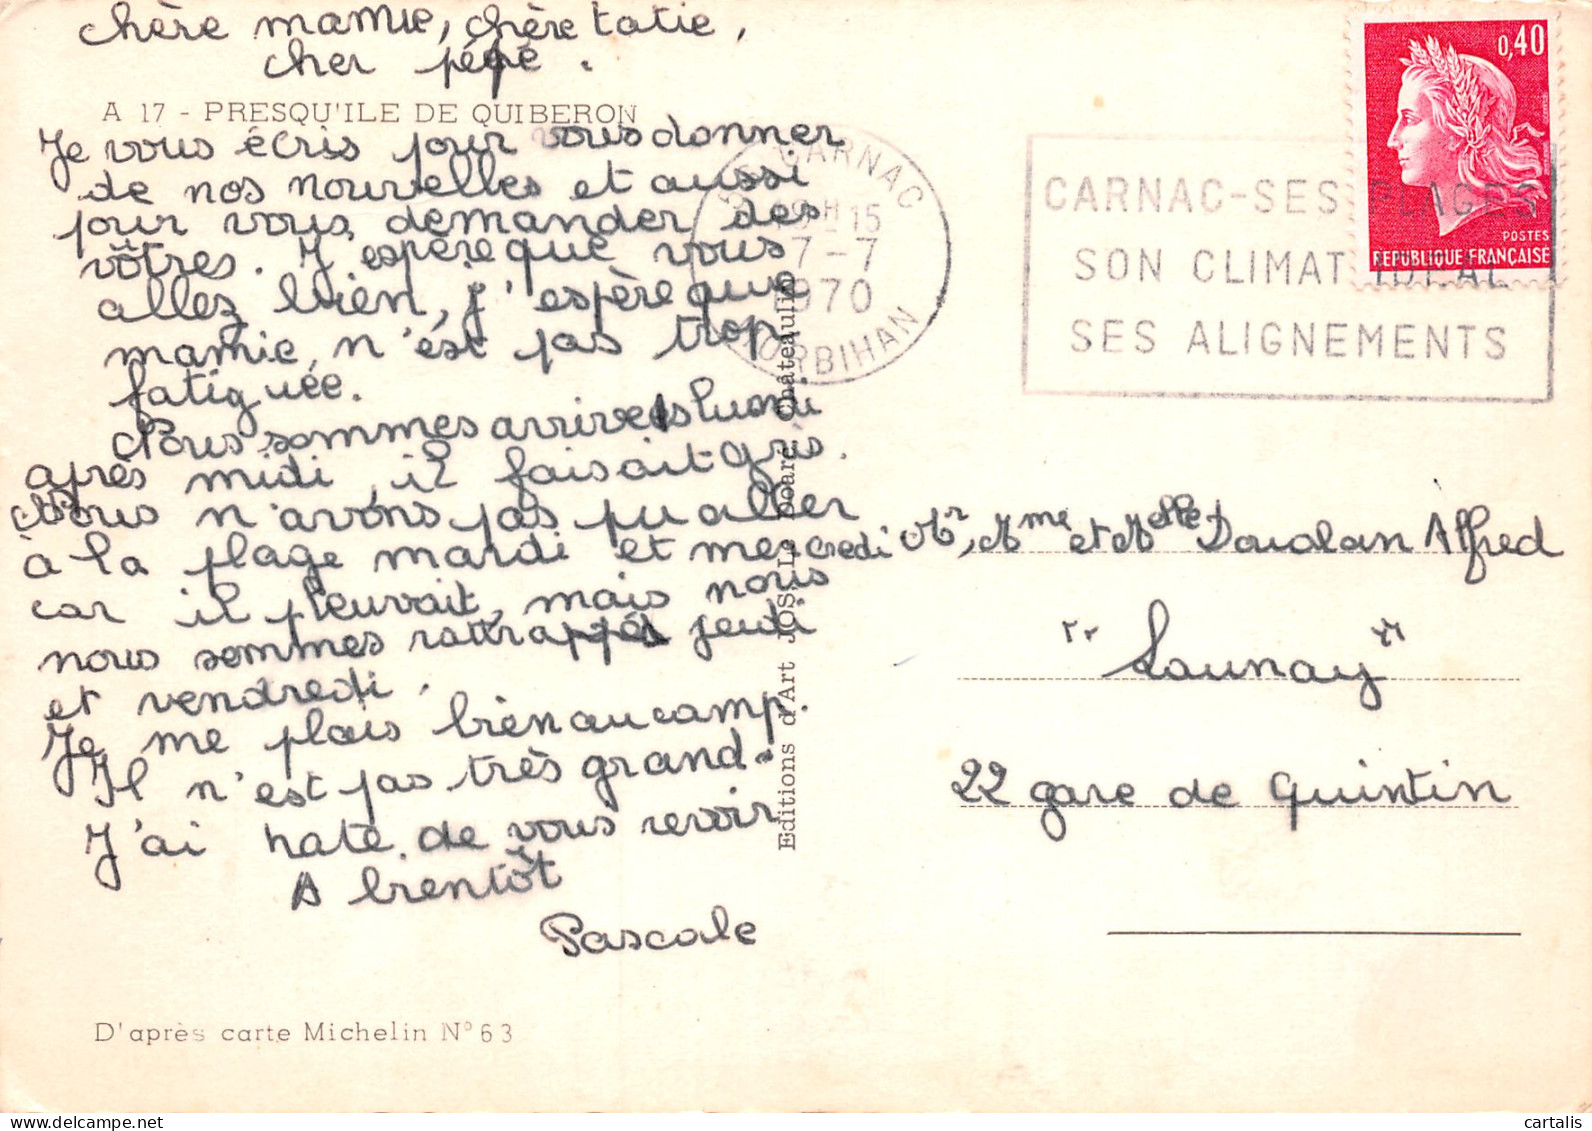 chère mamie, chère tatie,
cher pépé.
A 17 - PRESQU'ILE DE QUIBERON
Je vous écris pour vous donner
de nos nouvelles et aussi
pour vous demander des
vôtres. J'espère que vous
allez bien, j'espère que
mamie, n'est pas trop
fatiguée.
Nous sommes arrivés lundi
après midi, il faisait gris.
Nous n'avons pas pu aller
à la plage mardi et mercredi
car il pleuvait, mais nous
nous sommes rattrappés jeudi
et vendredi.
Je me plais bien au camp.
Il n'est pas très grand.
J'ai hate de vous revoir
A bientôt
Pascale
D'après carte Michelin N° 63
Editions d'Art JOS Le Doaré, Châteaulin
CARNAC
15
7-7
1970
MORBIHAN
CARNAC-SES PLAGES
SON CLIMAT IDEAL
SES ALIGNEMENTS
0,40
POSTES
REPUBLIQUE FRANÇAISE
Mr, Mme et Melle Doualan Alfred
"Launay"
22 gare de Quintin
cartalis